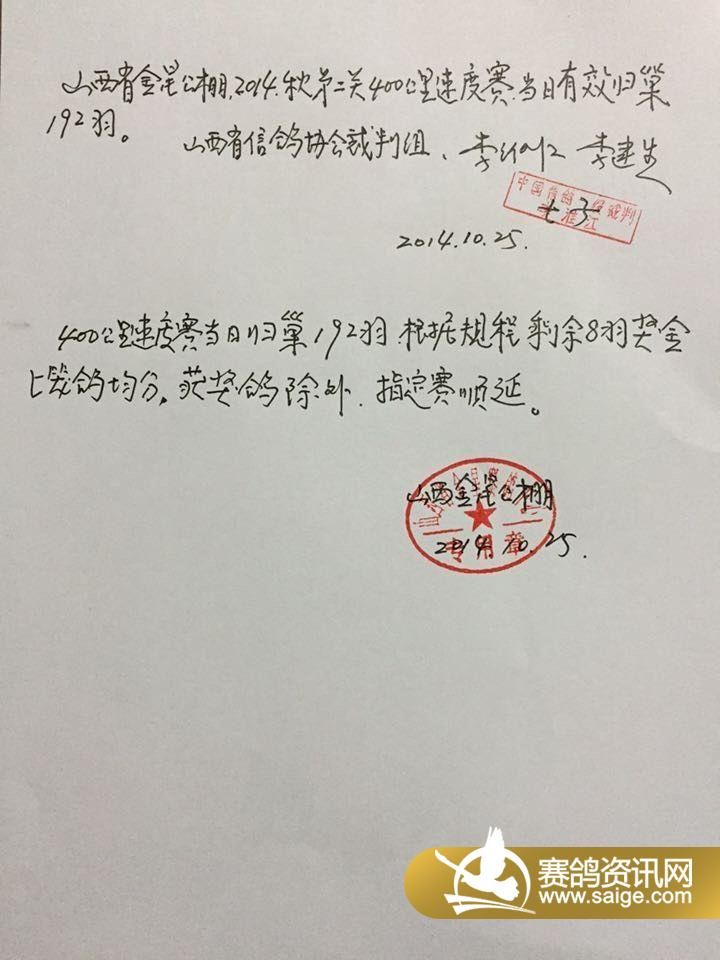 山西省金昆公棚,2014.秋第二关400公里速度赛,当日有效归巢
192羽。
山西省信鸽协会裁判组、李 李建生
中国信鸽 级裁判
淮江
2014.10.25.
400公里速度赛当日归巢192羽.根据规程剩余8羽奖金
上笼鸽均分,获奖鸽除外.指定赛顺延。
山西金昆公棚
专用章
2014.10.25.
赛鸽资讯网
www.saige.com